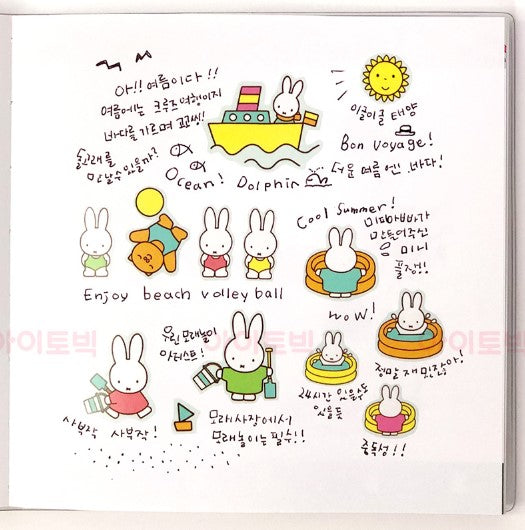 아!! 여름이다!!
여름에는 크루즈여행이지
바다를 가르며 고고씽!
돌고래를
만날수있을까?
Ocean! Dolphin
이글이글 태양
Bon voyage!
더운 여름엔 바다!
Cool Summer!
미피아빠가
만들어주신
미니
풀장!!
Enjoy beach volley ball
WOW!
아이토빅
아이토빅
우린 모래놀이
아티스트!
정말 재밌잖아!
24시간 있을수도
있을듯
사부작 사부작!
모래사장에서
모래놀이는 필수!!
중독성!!